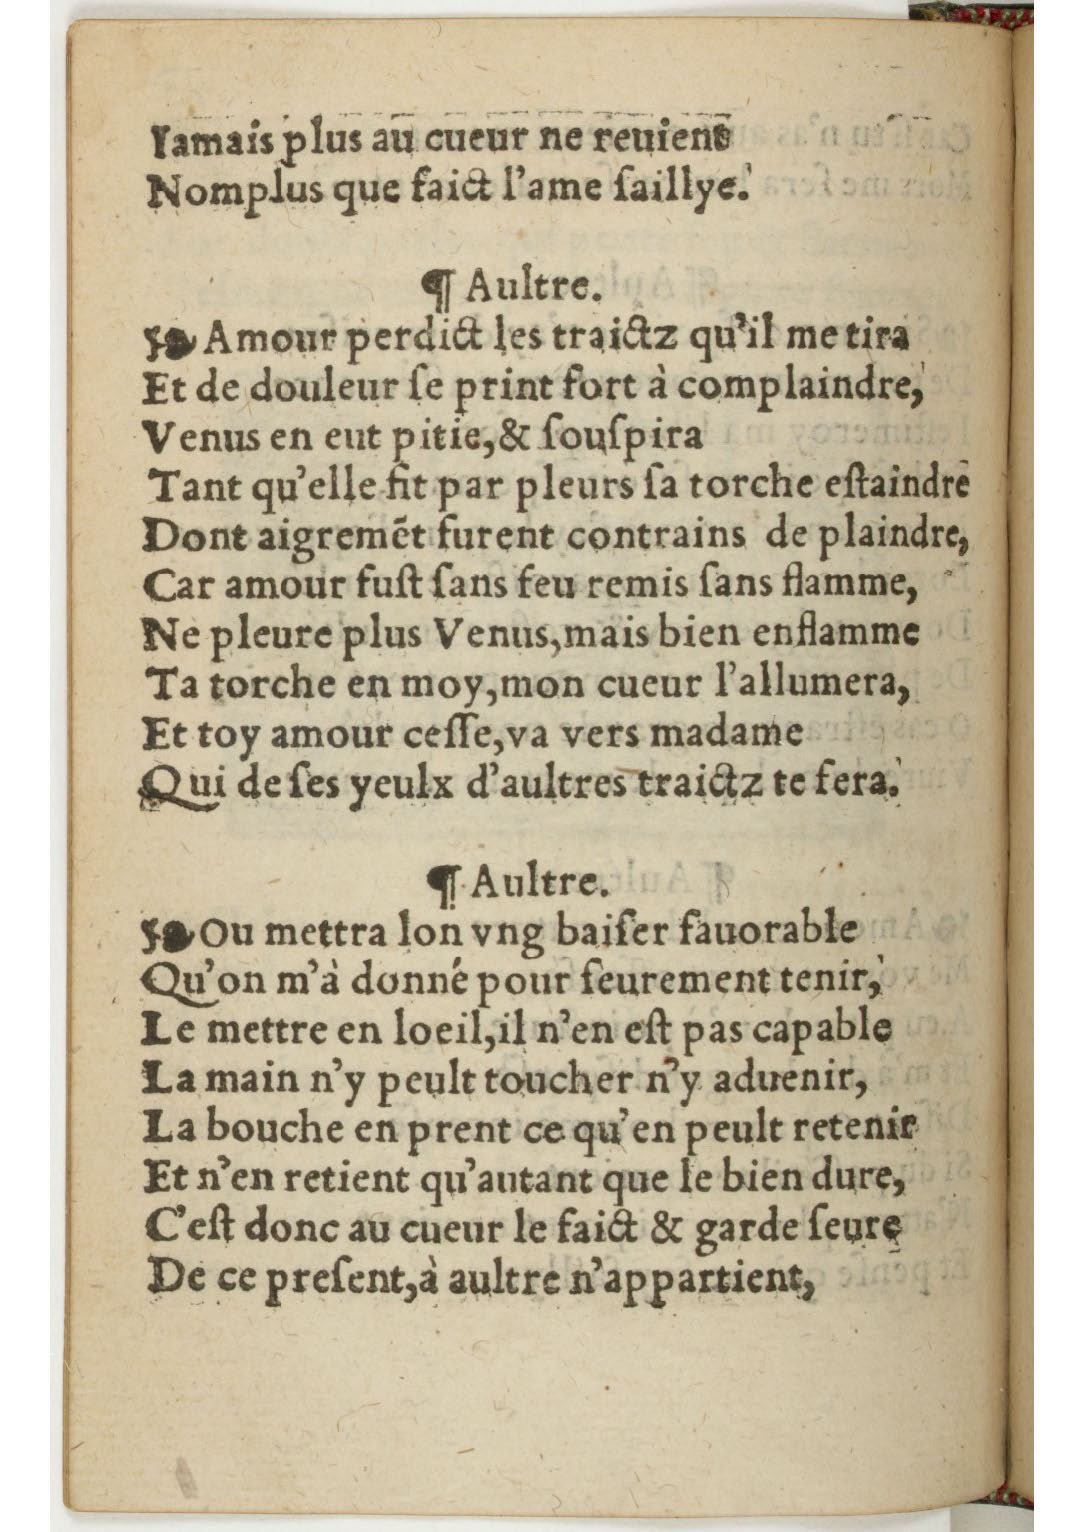 Iamais plus au cueur ne reuient
Nomplus que faict l'ame ſaillye.
¶ Aultre.
❧ Amour perdict les traictz qu'il me tira
Et de douleur ſe print fort à complaindre,
Venus en eut pitie,& ſouſpira
Tant qu'elle fit par pleurs ſa torche eſtaindre
Dont aigremẽt furent contrains de plaindre,
Car amour fuſt ſans feu remis ſans flamme,
Ne pleure plus Venus,mais bien enflamme
Ta torche en moy,mon cueur l'allumera,
Et toy amour ceſſe,va vers madame
Qui de ſes yeulx d'aultres traictz te fera.
¶ Aultre.
❧ Ou mettra lon vng baiſer fauorable
Qu'on m'à donné pour ſeurement tenir,
Le mettre en loeil,il n'en eſt pas capable
La main n'y peult toucher n'y aduenir,
La bouche en prent ce qu'en peult retenir
Et n'en retient qu'autant que le bien dure,
C'eſt donc au cueur le faict & garde ſeure
De ce preſent,à aultre n'appartient,